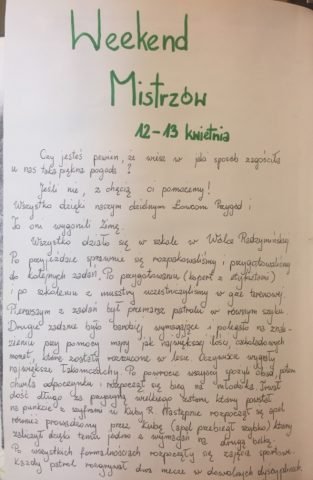 Weekend
Mistrzów
12-13 kwietnia
Czy jesteś pewien, że wiesz w jaki sposób zagościła
u nas taka piękna pogoda?
Jeśli nie, z chęcią ci pomożemy!
Wszystko dzięki naszym dzielnym Łowcom Przygód i
To oni wygonili Zimę.
Wszystko działo się w szkole w Wólce Radzymińskiej
Po przyjeździe sprawnie się rozpakowaliśmy i przygotowaliśmy
do kolejnych zadań. Po przygotowaniu (kopert z
i po szkoleniu z musztry uczestniczyliśmy w grze terenowej.
Pierwszym z zadań był przemarsz patrolu w równym szyku
Drugie zadanie było bardziej wymagające i polegało na zna-
zieniu przy pomocy mapy jak największej ilości czekoladowych
monet, które zostały rozrzucone w lesie Oczywiście wygrały
największe łakomczuchy. Po powrocie wszyscy spożyli obiad, potem
chwila odpoczynku i rozpoczął się bieg na młodzika. Trwał
dość długo za przyczyną wielkiego zastoju, który powstał
na punkcie z szyframi u Kuby R. Następnie rozpoczął się apel
również prowadzony przez Kubę (apel przebiegł szybko) który
zaliczył dzięki temu jedno z wymagań na drugą belkę.
Po wszystkich formalnościach rozpoczęły się zajęcia sportowe
każdy patrol rozgrywał dwa mecze w dowolnych dyscyplinach.